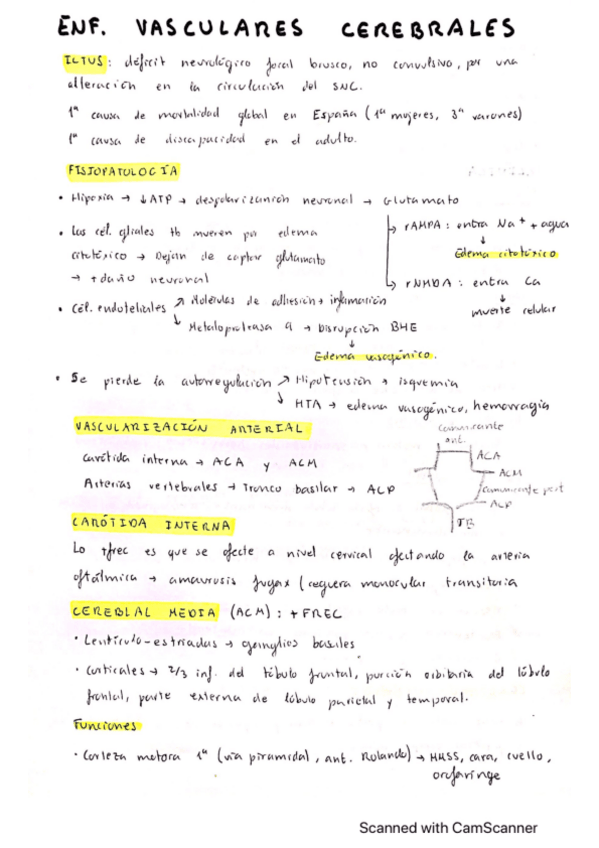 ENF. VASCULARES CEREBRALES
ICTUS: déficit neurológico focal brusco, no convulsivo, por una
alteración en la circulación del SNC.
1ª causa de mortalidad global en España (1ª mujeres, 3ª varones)
1ª causa de discapacidad en el adulto.
FISIOPATOLOGÍA
• Hipoxia → ↓ATP → despolarización neuronal → Glutamato
→ rAMPA: entra Na⁺ + agua
↓
Edema citotóxico
→ rNMDA: entra Ca
↓
muerte celular
• Las cél. gliales tb mueren por edema
citotóxico → Dejan de captar glutamato
→ + daño neuronal
• Cél. endoteliales ↗ Moléculas de adhesión → inflamación
↘ Metaloproteasa 9 → Disrupción BHE
↓
Edema vasogénico.
• Se pierde la autorregulación ↗ Hipotensión → isquemia
↘ HTA → edema vasogénico, hemorragia
VASCULARIZACIÓN ARTERIAL
Carótida interna → ACA y ACM
Arterias vertebrales → Tronco basilar → ACP
Comunicante
ant.
ACA
ACM
Comunicante post
ACP
TB
CARÓTIDA INTERNA
Lo +frec es que se afecte a nivel cervical afectando la arteria
oftálmica → amaurosis fugax (ceguera monocular transitoria
CEREBLAL MEDIA (ACM): + FREC
• Lentículo-estriadas → ganglios basales
• Corticales → 2/3 inf. del lóbulo frontal, porción orbitaria del lóbulo
frontal, parte externa de lóbulo parietal y temporal.
Funciones
• Corteza motora 1ª (vía piramidal, ant. Rolando) → MMSS, cara, cuello,
orofaringe
Scanned with CamScanner